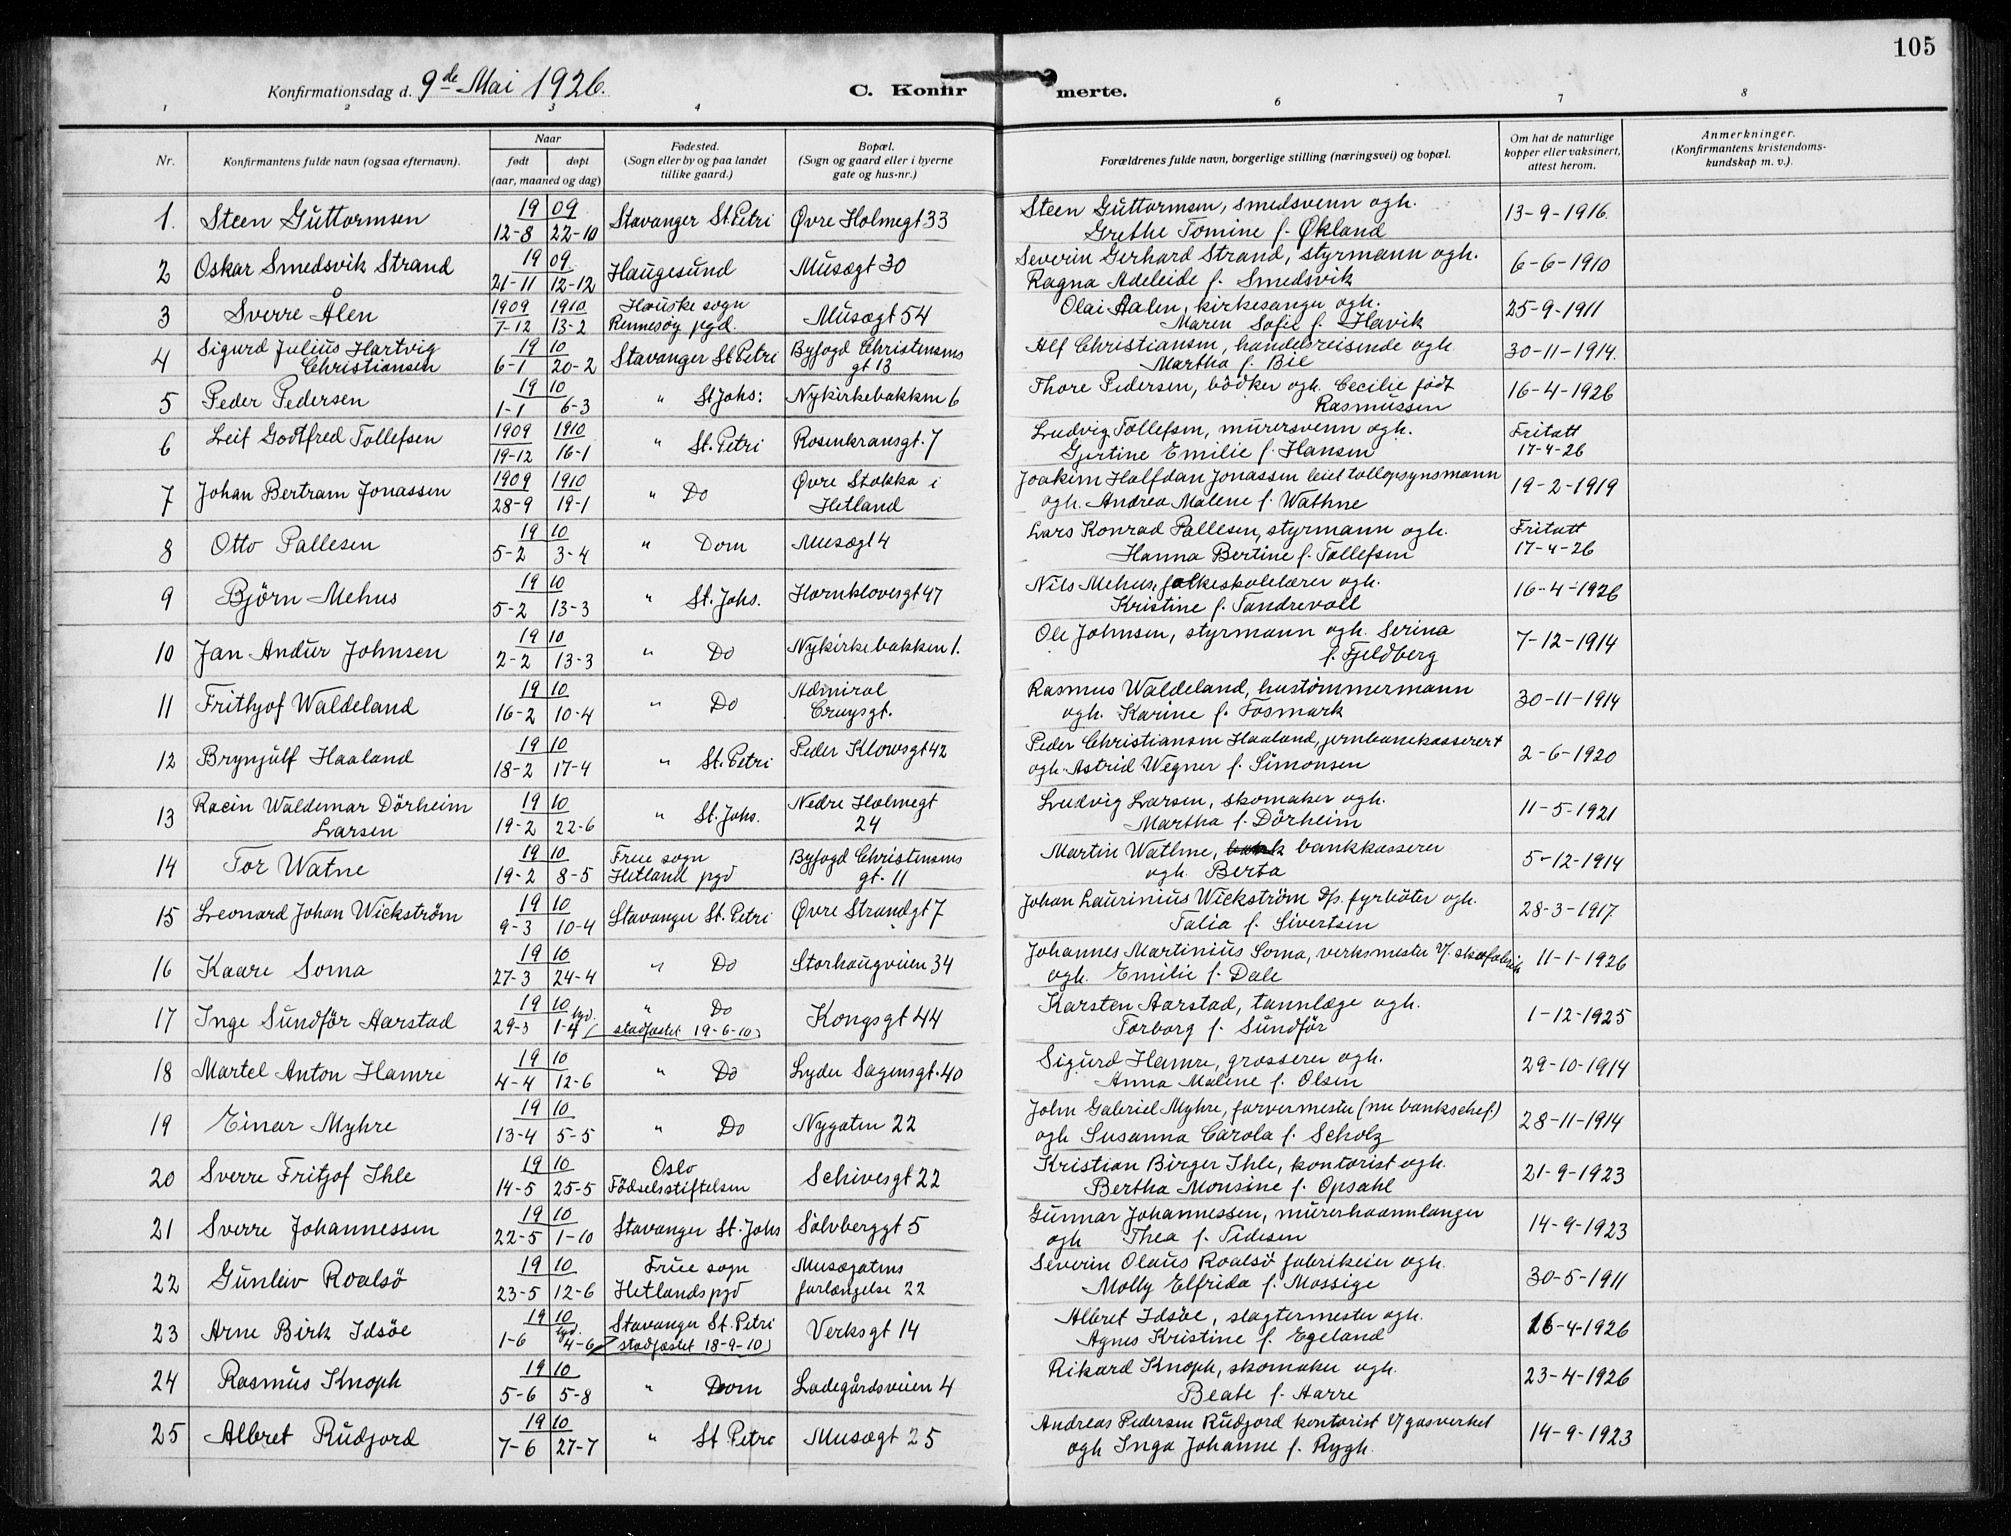 105
Konfirmationsdag d. 9de Mai 1926.
C. Konfirmerte.
1 2 3 4 6 7 8
Nr.
Konfirmantens fulde navn (ogsaa efternavn).
Naar
født døpt
(aar, maaned og dag)
Fødested.
(Sogn eller by og paa landet
tillike gaard.)
Bopæl.
(Sogn og gaard eller i byerne
gate og hus-nr.)
Forældrenes fulde navn, borgerlige stilling (næringsvei) og bopæl.
Om hat de naturlige
kopper eller vaksinert,
attest herom.
Anmerkninger.
(Konfirmantens kristendoms-
kundskap m. v.).
1. Steen Guttormsen 19 09 12-8 22-10 Stavanger St. Petri Øvre Holmegt 33
Steen Guttormsen, smedsvenn ogh.
Grethe Tomine f. Økland 13-9-1916.
2 Oskar Smedsvik Strand 19 09 21-11 12-12 Haugesund Musægt 30
Severin Gerhard Strand, styrmann ogh.
Ragna Adeleide f. Smedsvik 6-6-1910
3 Sverre Ålen 1909 7-12 1910 13-2 Hauske sogn
Rennesøy pgd. Musægt 54
Olai Aalen, kirkesanger ogh.
Maren Sofie f. Havik 25-9-1911
4 Sigurd Julius Hartvig
Christiansen 19 10 6-1 20-2 Stavanger St. Petri Byfogd Christensens
gt 13
Alf Christiansen, handelsreisende ogh
Martha f. Bie 30-11-1914.
5 Peder Pedersen 19 10 1-1 6-3 " St Johs: Nykirkebakken 6
Thore Pedersen, bødker ogh. Cecilie født
Rasmussen 16-4-1926
6 Leif Godtfred Tollefsen 1909 19-12 1910 16-1 " St. Petri Rosenkransgt. 7
Ludvig Tollefsen, murersvenn ogh.
Gjertine Emilie f. Hansen Fritatt
17-4-26
7 Johan Bertram Jonassen 1909 28-9 1910 19-1 " Do Øvre Stokka i
Hetland
Joakim Halfdan Jonassen leiet tollopsynsmann
ogh. Andrea Malene f. Wathne 19-2-1919
8 Otto Pallesen 19 10 5-2 3-4 " Dom Musægt 4
Lars Konrad Pallesen, styrmann ogh.
Hanna Bertine f. Tollefsen Fritatt
17-4-26
9 Bjørn Mehus 19 10 5-2 13-3 " St. Johs. Hornklovesgt 47
Nils Mehus, folkeskolelærer ogh.
Kristine f. Tandrevold 16-4-1926
10 Jan Andur Johnsen 19 10 2-2 13-3 " Do Nykirkebakken 1.
Ole Johnsen, styrmann ogh. Serina
f. Fjeldberg 7-12-1914
11 Frithjof Waldeland 19 10 16-2 10-4 " Do Admiral
Cruysgt.
Rasmus Waldeland, hustømmermann
ogh. Karine f. Fosmark 30-11-1914
12 Brynjulf Haaland 19 10 18-2 17-4 " St. Petri Peder Klowsgt 42
Peder Christiansen Haaland, jernbanekasserert
ogh. Astrid Wegner f. Simonsen 2-6-1920
13 Racin Waldemar Dörheim
Larsen 19 10 19-2 22-6 " St. Johs. Nedre Holmegt
24
Ludvig Larsen, skomaker ogh.
Martha f. Dörheim 11-5-1921
14 Tor Watne 19 10 19-2 8-5 Frue sogn
Hetland pgd Byfogd Christensens
gt. 11
Martin Wathne, bank bankkasserer
ogh. Berta 5-12-1914
15 Leonard Johan Wickström 19 10 9-3 10-4 Stavanger St. Petri Øvre Strandgt 7
Johan Laurinius Wickström D/s. fyrbøter ogh.
Talia f. Sivertsen 28-3-1917.
16 Kaare Soma 19 10 27-3 24-4 " Do Storhaugveien 34
Johannes Martinius Soma, verksmester v/. skofabrik
ogh. Emilie f. Dale 11-1-1926
17 Inge Sundför Aarstad 19 10 29-3 hjd. 1-4 " Do
(stadfæstet 19-6-10) Kongsgt 44
Karsten Aarstad, tannlæge ogh.
Torborg f. Sundför 1-12-1925
18 Martel Anton Hamre 19 10 4-4 12-6 " Do Lyder Sagensgt. 40
Sigurd Hamre, grosserer ogh.
Anna Malene f. Olsen 29-10-1914
19 Einar Myhre 19 10 13-4 5-5 " Do Nygaten 22
John Gabriel Myhre, farvermester (nu bankschef)
ogh Susanna Carola f. Scholz 28-11-1914
20 Sverre Fritjof Ihle 19 10 14-5 25-5 Oslo
Födselsstiftelsen Schivesgt 22
Kristian Birger Ihle, kontorist ogh.
Bertha Monsine f. Opsahl 21-9-1923
21 Sverre Johannessen 19 10 22-5 1-10 Stavanger St. Johs Sølvberggt 5
Gunnar Johannessen, murerhaanlanger
ogh Thea f. Tidesen 14-9-1923
22 Gunleiv Roalsö 19 10 23-5 12-6 Frue sogn
Hetlands pgd Musægatens
forlængelse 22
Severin Olaus Roalsö fabrikeier ogh.
Molly Elfrida f. Mossige 30-5-1911
23 Arne Birk Idsöe 19 10 1-6 hjd. 4-6 Stavanger St. Petri
(stadfæstet 18-9-10) Verksgt 14
Albret Idsöe, slagtermester ogh.
Agnes Kristine f. Egeland 16-4-1926
24 Rasmus Knoph 19 10 5-6 5-8 " Dom Ladegårdsveien 4
Rikard Knoph, skomaker ogh.
Beate f. Aarre 23-4-1926
25 Albret Rudjord 19 10 7-6 27-7 " St. Petri Musægt 25
Andreas Pedersen Rudjord kontorist v/ gasverket
ogh Inga Johanne f. Rygh. 14-9-1923